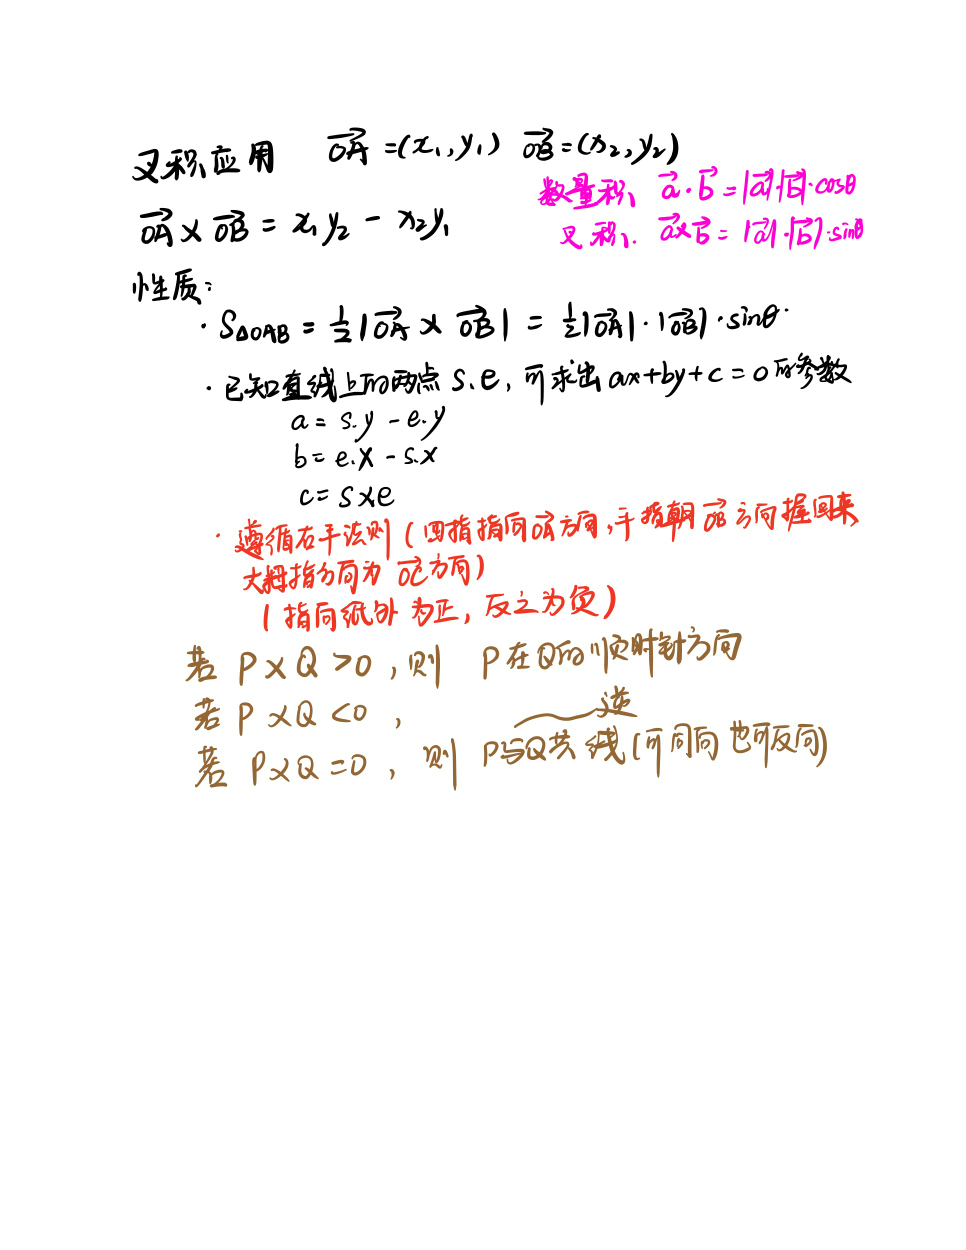 叉积应用 OA=(x₁,y₁) OB=(x₂,y₂)
数量积 a·b=|a||b|·cosθ
OA×OB=x₁y₂-x₂y₁
叉积. a×b=|a|·|b|·sinθ
性质:
·S△OAB=½|OA×OB|=½|OA|·|OB|·sinθ·
·已知直线上的两点s.e,可求出ax+by+c=0的参数
a=s.y-e.y
b=e.x-s.x
c=s×e
·遵循右手法则(四指指向OA方向,手指朝OB方向握回来
大拇指方向为OC方向)
(指向纸外为正,反之为负)
若P×Q>0,则 P在Q的顺时针方向
若P×Q<0, 逆
若P×Q=0,则 P与Q共线(可同向也可反向)